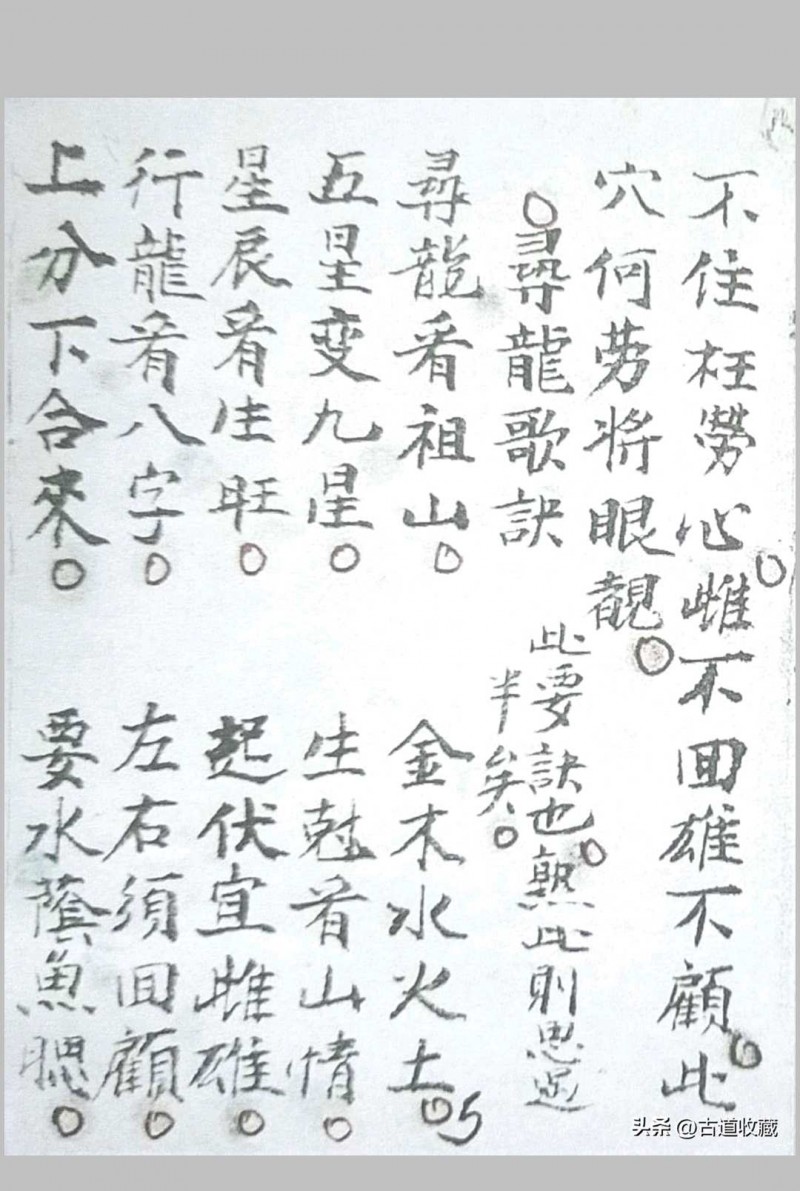 不住枉勞心雌不回雄不顧此
穴何劳将眼觀
尋龍歌訣
此要訣也熟此則思過
半矣
尋龍看祖山 金木水火土
五星变九星 生尅看山情
星辰看生旺 起伏宜雌雄
行龍看八字 左右須回顧
上分下合來 要水蔭魚腮
头条 @古道收藏